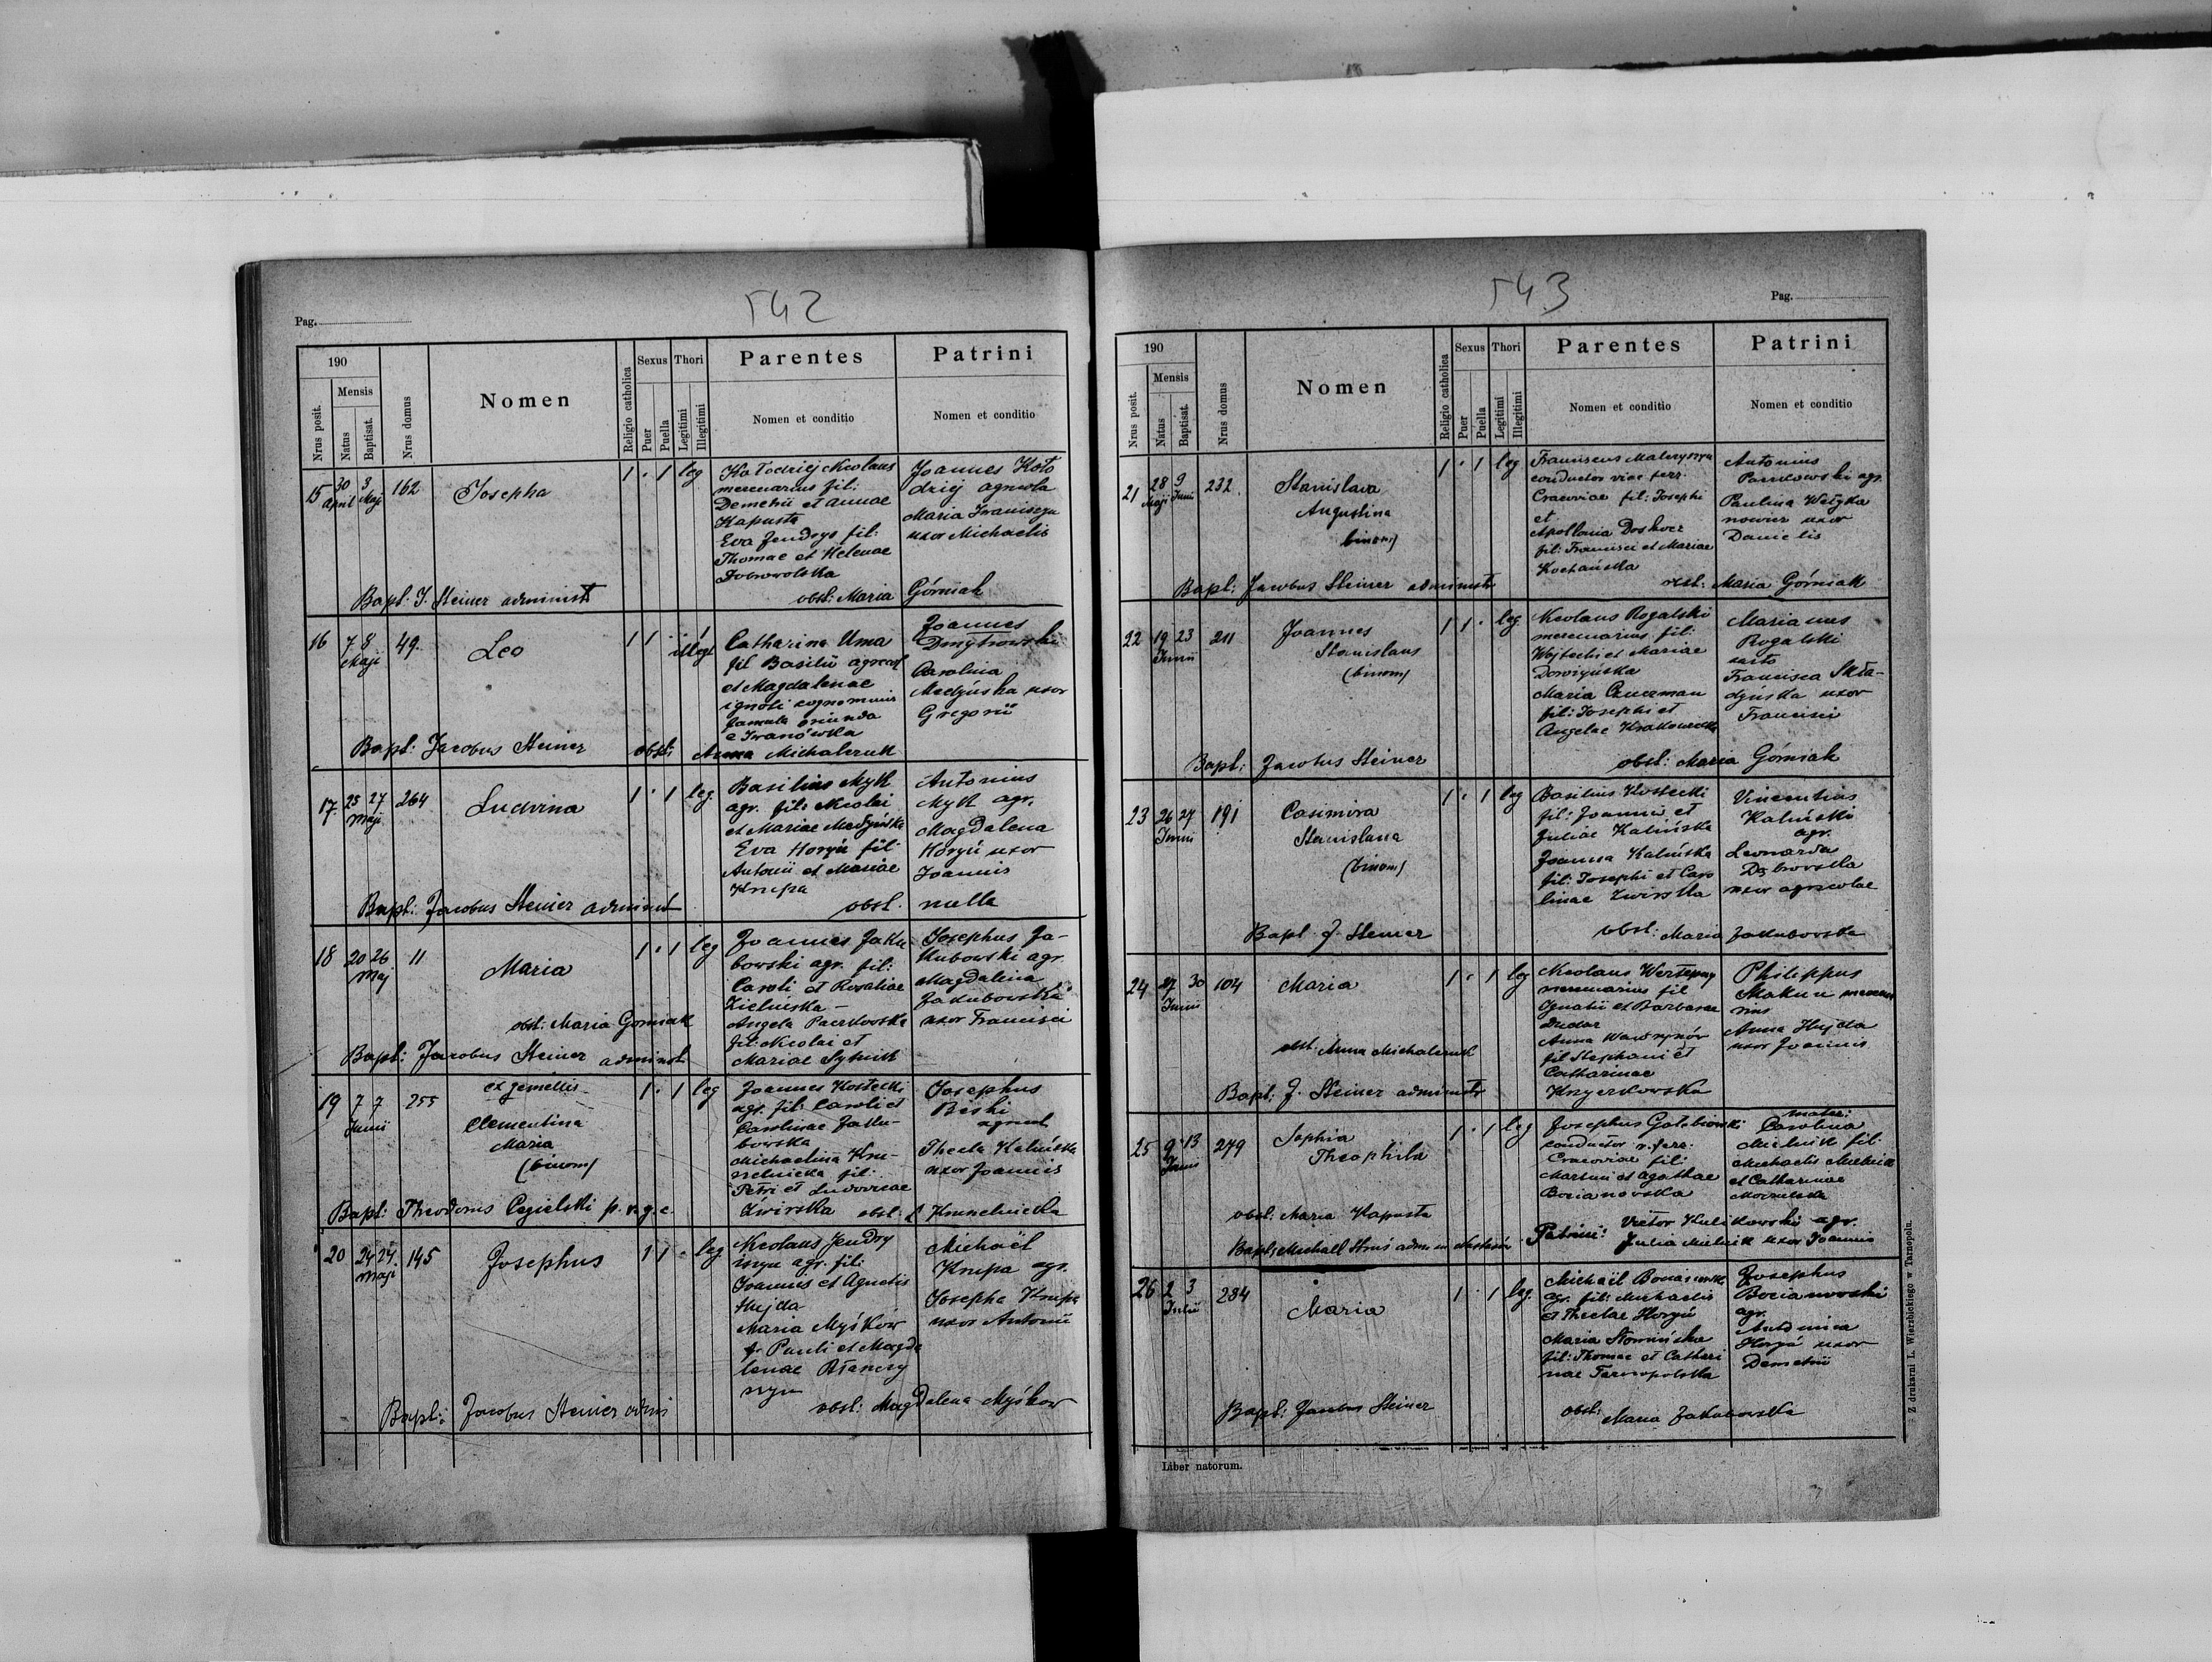 542
Pag.
190
Mensis
Nrus posit.
Natus
Baptisat.
Nrus domus
Nomen
Religio catholica
Sexus
Puer
Puella
Thori
Legitimi
Illegitimi
Parentes
Nomen et conditio
Patrini
Nomen et conditio
15
30 April
3 Maji
162
Josepha
1 · 1 leg
Kołodziej Nicolaus
mercenarius fil:
Demetrii et Annae
Kapusta
Eva Jendrys fil:
Thomae et Helenae
Dobrowolska
Joannes Koło
dziej agricola
Maria Iwaniszyn
uxor Michaelis
Bapt. J. Steiner administ
obst: Maria Górniak
16
7 8
Maji
49.
Leo
1 1 · illegt
Catharina Uma
fil Basilii agricol
et Magdalenae
ignoti cognominis
famula oriunda
e Iwanówka
Joannes
Dmytrowski
Carolina
Medyńska uxor
Gregorii
Bapt: Jacobus Steiner
obst: Anna Michalczuk
17.
25 27
Maji
264
Ludvina
1 · 1 leg.
Basilius Myk
agr. fil: Nicolai
et Mariae Medyńska
Eva Horyń fil:
Antonii et Mariae
Krupa
Antonius
Myk agr.
Magdalena
Horyń uxor
Joannis
Bapt: Jacobus Steiner administ
obst. nulla
18
20 26
Maj
11
Maria
1 · 1 leg
Joannes Jaku
bowski agr. fil:
Caroli et Rosaliae
Zielińska –
Angela Paczkowska
fil: Nicolai et
Mariae Sytnik
Josephus Ja-
kubowski agr.
Magdalena
Jakubowska
uxor Francisci
obst: Maria Górniak
Bapt: Jacobus Steiner administ.
19
7 7
Junii
255
ex gemellis
Clementina
Maria
(binom)
1 · 1 leg
Joannes Kostecki
agr. fil: Caroli et
Carolinae Jaku-
bowska
Michaelina Kru-
nelnicka fil:
Petri et Ludovicae
Żwirska
Josephus
Beski
agricol
Thecla Kalińska
uxor Joannis
Bapt: Theodorus Cegielski p. r. g. c.
obst:
20
24 24.
Maji
145
Josephus
1 1 · leg
Nicolaus Jendry
iszyn agr. fil:
Joannis et Agnetis
Hujda
Maria Myśków
f. Pauli et Magda
lenae
szyn
Michaël
Krupa agr.
Josepha Krupa
uxor Antonii
Bapt: Jacobus Steiner admi
obst: Magdalena Myśkow
543
Pag.
190
Mensis
Nrus posit.
Natus
Baptisat.
Nrus domus
Nomen
Religio catholica
Sexus
Puer
Puella
Thori
Legitimi
Illegitimi
Parentes
Nomen et conditio
Patrini
Nomen et conditio
21
28 Maji
9 Junii
232.
Stanislava
Augustina
binom)
1 · 1 leg
Franciscus
conductor viae ferr.
Cracoviae fil: Josephi
et
Apollonia
fil: Francisci et Mariae
Kochańska
Antonius
agr.
Paulina
uxor
Danielis
Bapt: Jacobus Steiner administr
obst: Maria Górniak
22
19 23
Junii
211
Joannes
Stanislaus
(binom)
1 1 · leg
Nicolaus Rogalski
mercenarius fil:
Wojtechi et Mariae
Maria Czuczman
fil: Josephi et
Angelae Krakowiecka
Marianus
Rogalski
Francisca Skła-
dzińska uxor
Francisci
Bapt: Jacobus Steiner
obst: Maria Górniak
23
26 27
Junii
191
Casimira
Stanislava
(binom)
1 · 1 leg
Basilius Kostecki
fil: Joannis et
Juliae Kalińska
Joanna Kalińska
fil: Josephi et Caro
linae Żwirska
Vincentius
Kaliński
agr.
Leonarda
Dąbrowska
uxor agricolae
Bapt. J. Steiner
obst: Maria Jakubowska
24
27 30
Junii
104
Maria
1 · 1 leg
Nicolaus
mercenarius fil
Ignatii et Barbarae
Dudar
Anna Wawrynów
fil Stephani et
Catharinae
Knyerkowska
Philippus
Makuu mercena
rius
Anna Hujda
uxor Joannis
obst. Anna Michalczuk
Bapt: J. Steiner administr
25
9 13
Junii
279
Sophia
Theophila
1 · 1 leg
Josephus Gołębiowski
conductor v. ferr.
Cracoviae fil:
Martini et Agathae
Bocianowska
mater:
Carolina
Mielnik fil:
Michaelis Mielnik
et Catharinae
obst: Maria Kapusta
Bapt: Michaël adm in
Patrini: Victor Kulikowski agr.
Julia Mielnik uxor Joannis
26
2 3
Julii
284
Maria
1 · 1 leg.
Michaël Bocianowski
agr. fil: Michaelis
et Theclae Horyń
Maria Słomińska
fil: Thomae et Cathari
nae Tarnopolska
Josephus
Bocianowski
agr.
Antonina
Horyń uxor
Demetrii
Bapt: Jacobus Steiner
obst: Maria Jakubowska
Liber natorum.
Z drukarni L. Wierzbickiego w Tarnopolu.